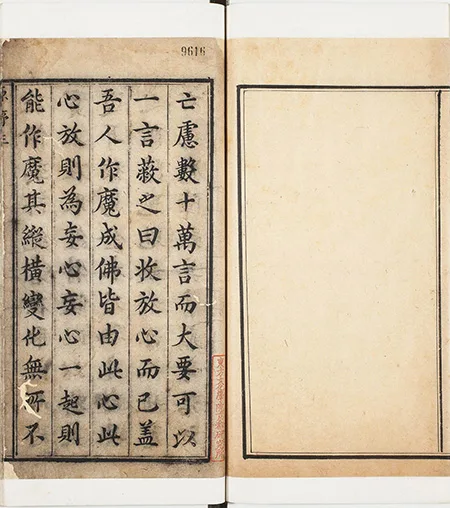 9616
亡慮數十萬言而大要可以
一言蔽之曰收放心而已盖
吾人作魔成佛皆由此心此
心放則為妄心妄心一起則
能作魔其縱橫變化無所不